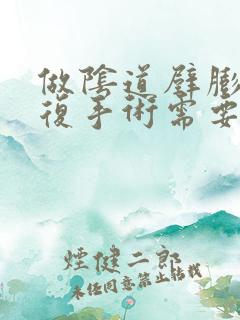 做陰道壁膨
復手術需要
煙健二郎
未经同意禁止转载